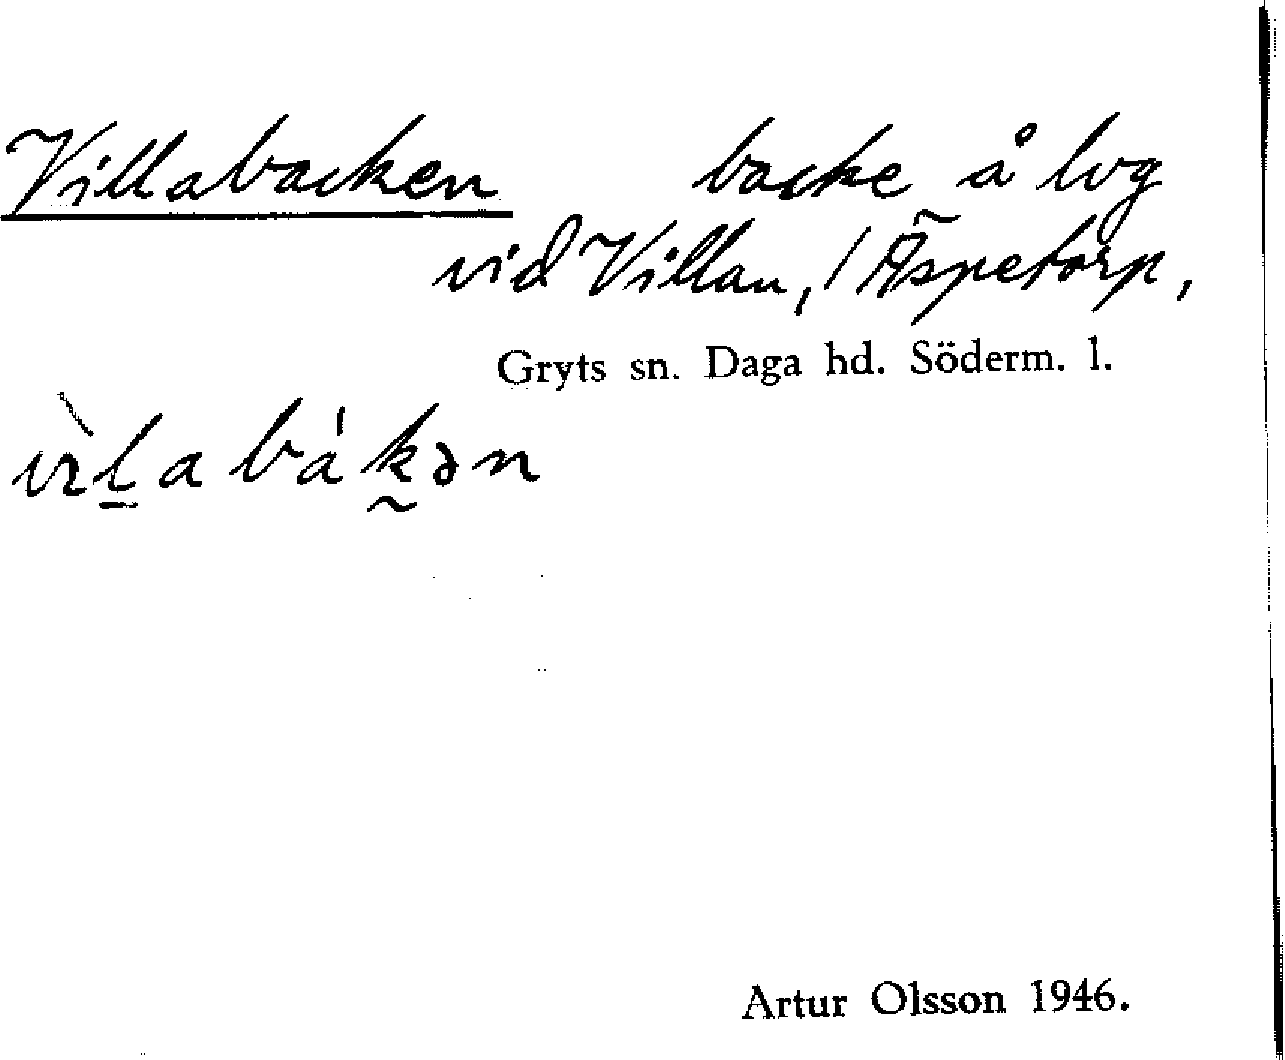 Villabacken backe å lvg
vid Villan, / Äspetorp,
Gryts sn. Daga hd. Söderm. l.
vìl̠a bák̰ən
Artur Olsson 1946.